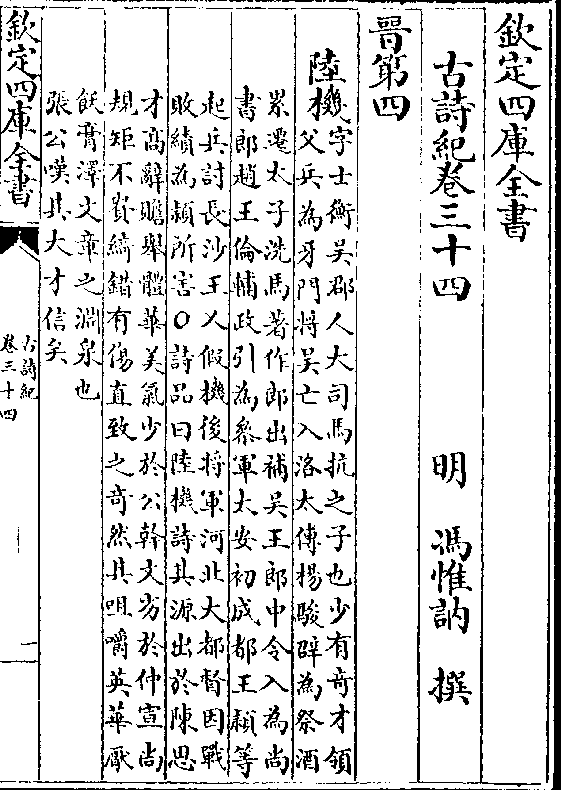 欽定四庫全書
古詩紀卷三十四
明 馮惟訥 撰
晉第四
陸機字士衡吳郡人大司馬抗之子也少有奇才領
父兵為牙門將吳亡入洛太傅楊駿辟為祭酒
累遷太子洗馬著作郎出補吳王郎中令入為尚
書郎趙王倫輔政引為叅軍太安初成都王穎等
起兵討長沙王乂假機後將軍河北大都督因戰
敗績為穎所害○詩品曰陸機詩其源出於陳思
才高辭贍舉體華美氣少於公幹文劣於仲宣尚
規矩不貴綺錯有傷直致之奇然其咀嚼英華厭
飫膏澤文章之淵泉也
張公嘆其大才信矣
欽定四庫全書
古詩紀
卷三十四
一